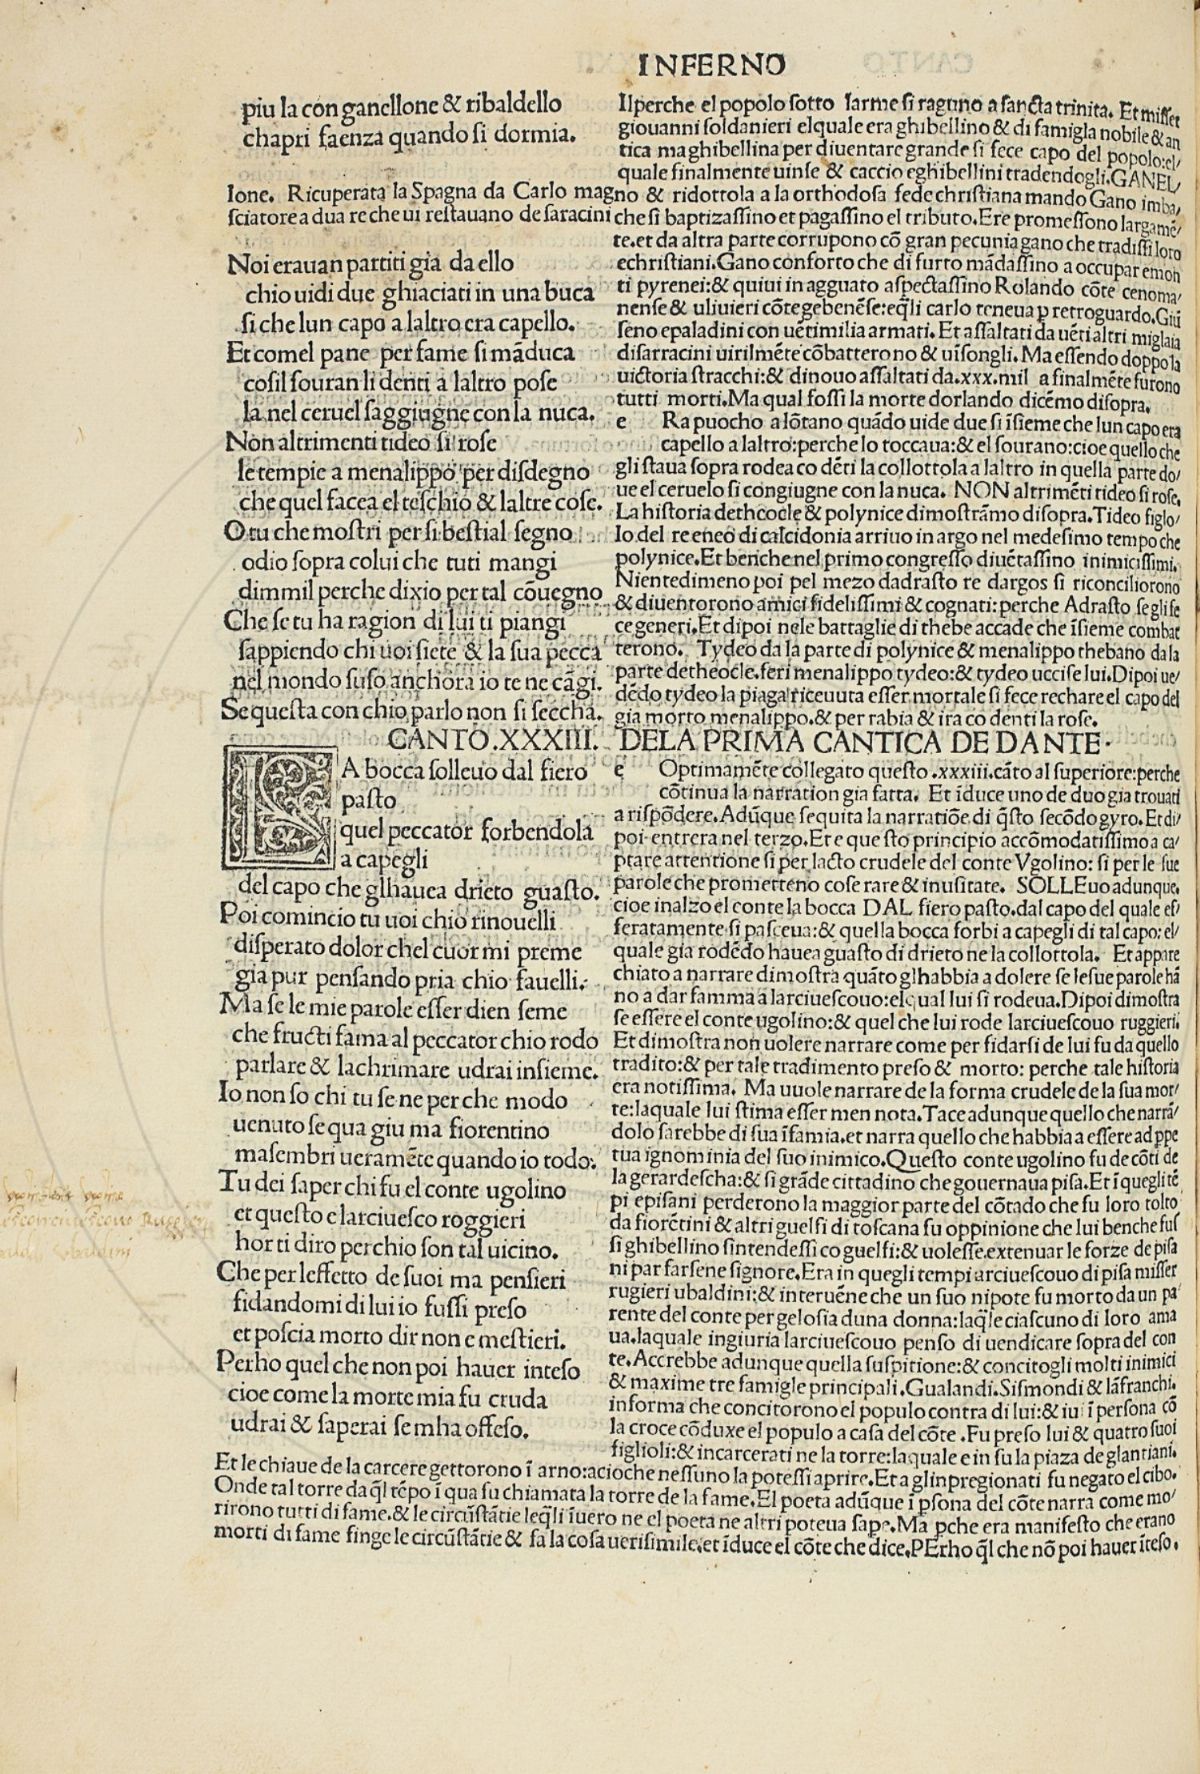 INFERNO
piu la con ganellone & ribaldello
chapri faenza quando si dormia.
Noi erauan partiti gia da ello
chio uidi due ghiaciati in una buca
si che lun capo a laltro era capello.
Et comel pane per fame si mãduca
cosil souran li denti a laltro pose
la nel ceruel saggiugne con la nuca.
Non altrimenti tideo si rose
le tempie a menalippo per disdegno
che quel facea el teschio & laltre cose.
O tu che mostri per si bestial segno
odio sopra colui che tuti mangi
dimmil perche dixio per tal cõuegno
Che se tu ha ragion di lui ti piangi
sappiendo chi uoi siete & la sua pecca
nel mondo suso anchora io te ne cãgi.
Se questa con chio parlo non si seecha.
Ilperche el popolo sotto larme si raguno a sancta trinita. Et misser
giouanni soldanieri elquale era ghibellino & di famigla nobile & an
tica ma ghibellina per diuentare grande si fece capo del popolo: el/
quale finalmente uinse & caccio eghibellini tradendogli. GANEL/
lone. Ricuperata la Spagna da Carlo magno & ridottola a la orthodosa fede christiana mando Gano imba/
sciatore a dua re che ui restauano de saracini che si baptizassino et pagassino el tributo. Ere promessono largamẽ/
te. et da altra parte corrupono cõ gran pecunia gano che tradissi loro
echristiani. Gano conforto che di furto mãdassino a occupar emon
ti pyrenei: & quiui in agguato aspectassino Rolando cõte cenoma/
nense & uliuieri cõte gebenẽse: eq̃li carlo teneua p retroguardo. Giũ
seno epaladini con uẽtimilia armati. Et assaltati da uẽti altri miglaia
di sarracini uirilmẽte cõbatterono & uĩsongli. Ma essendo doppo la
uictoria stracchi: & dinouo assaltati da .xxx. mil a finalmẽte furono
tutti morti. Ma qual fossi la morte dorlando dicẽmo disopra.
e Ra puocho a lõtano quãdo uide due si ĩsieme che lun capo era
capello a laltro: perche lo toccaua: & el sourano: cioe quello che
gli staua sopra rodea co dẽti la collottola a laltro in quella parte do/
ue el ceruelo si congiugne con la nuca. NON altrimẽti tideo si rose.
La historia dethcocle & polynice dimostrãmo disopra. Tideo figlo/
lo del re eneo di calcidonia arriuo in argo nel medesimo tempo che
polynice. Et benche nel primo congresso diuẽtassino inimicissimi.
Nientedimeno poi pel mezo dadrasto re dargos si riconciliorono
& diuentorono amici fidelissimi & cognati: perche Adrasto se gli fe
ce generi. Et dipoi nele battaglie di thebe accade che ĩsieme combat
terono. Tydeo da la parte di polynice & menalippo thebano da la
parte detheocle. feri menalippo tydeo: & tydeo uccise lui. Dipoi ue/
dẽdo tydeo la piaga riceuuta esser mortale si fece rechare el capo del
gia morto menalippo. & per rabia & ira co denti la rose.
CANTO .XXXIII. DELA PRIMA CANTICA DE DANTE.
LA bocca solleuo dal fiero
pasto
quel peccator forbendola
a capegli
del capo che glhauea drieto guasto.
Poi comincio tu uoi chio rinouelli
disperato dolor chel cuor mi preme
gia pur pensando pria chio fauelli.
Ma se le mie parole esser dien seme
che fructi fama al peccator chio rodo
parlare & lachrimare udrai insieme.
Io non so chi tu se ne per che modo
uenuto se qua giu ma fiorentino
ma sembri ueramẽte quando io todo.
Tu dei saper chi fu el conte ugolino
et questo e larciuesco roggieri
hor ti diro perchio son tal uicino.
Che per leffetto de suoi ma pensieri
fidandomi di lui io fussi preso
et poscia morto dir non e mestieri.
Perho quel che non poi hauer inteso
cioe come la morte mia fu cruda
udrai & saperai se mha offeso.
e Optimamẽte collegato questo .xxxiii. cãto al superiore: perche
cõtinua la narration gia fatta. Et ĩduce uno de duo gia trouati
a rispõdere. Adũque sequita la narratiõe di q̃sto secõdo gyro. Et di/
poi entrera nel terzo. Et e questo principio accõmodatissimo a ca/
ptare attentione si per lacto crudele del conte Vgolino: si per le sue
parole che prometteno cose rare & inusitate. SOLLEuo adunque.
cioe inalzo el conte la bocca DAL fiero pasto. dal capo del quale ef/
feratamente si pasceua: & quella bocca forbi a capegli di tal capo: el/
quale gia rodẽdo hauea guasto di drieto ne la collottola. Et appare
chiato a narrare dimostra quãto glhabbia a dolere se le sue parole hã
no a dar famma a larciuescouo: elqual lui si rodeua. Dipoi dimostra
se essere el conte ugolino: & quel che lui rode larciuescouo ruggieri.
Et dimostra non uolere narrare come per fidarsi de lui fu da quello
tradito: & per tale tradimento preso & morto: perche tale historia
era notissima. Ma uuole narrare de la forma crudele de la sua mor/
te: laquale lui stima esser men nota. Tace adunque quello che narrã/
dolo sarebbe di sua ĩfamia. et narra quello che habbia a essere ad ppe
tua ignominia del suo inimico. Questo conte ugolino fu de cõti de
la gerardescha: & si grãde cittadino che gouernaua pisa. Et ĩ quegli tẽ
pi episani perderono la maggior parte del cõtado che fu loro tolto
da fiorẽtini & altri guelfi di toscana fu oppinione che lui benche fus
si ghibellino sintendessi co guelfi: & uolesse extenuar le forze de pisa
ni par farsene signore. Era in quegli tempi arciuescouo di pisa misser
rugieri ubaldini: & interuẽne che un suo nipote fu morto da un pa
rente del conte per gelosia duna donna: laq̃le ciascuno di loro ama
ua. laquale ingiuria larciuescouo penso di uendicare sopra del con
te. Accrebbe adunque quella suspitione: & concitogli molti inimici
& maxime tre famigle principali. Gualandi. Sismondi & lãfranchi.
informa che concitorono el populo contra di lui: & iui ĩ persona cõ
la croce cõduxe el populo a casa del cõte. Fu preso lui & quatro suoi
figlioli: & incarcerati ne la torre: laquale e in su la piaza de glantiani.
Et le chiaue de la carcere gettorono ĩ arno: acioche nessuno la potessi aprire. Et a glinpregionati fu negato el cibo.
Onde tal torre da q̃l tẽpo ĩ qua fu chiamata la torre de la fame. El poeta adũque ĩ psona del cõte narra come mo/
rirono tutti di fame. & le circũstãtie leq̃li ĩuero ne el poeta ne altri poteua sape. Ma pche era manifesto che erano
morti di fame finge le circũstãtie & fa la cosa uerisimile. et ĩduce el cõte che dice. PErho q̃l che nõ poi hauer ĩteso.